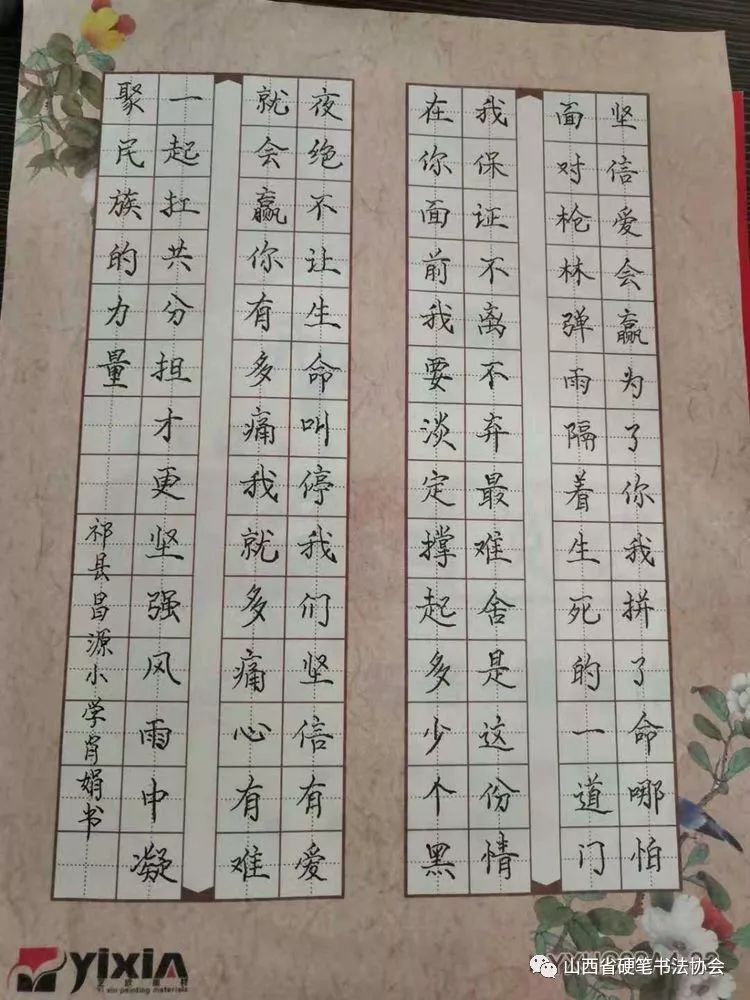 坚信爱会赢为了你我拼了命哪怕
面对枪林弹雨隔着生死的一道门
我保证不离不弃最难舍是这份情
在你面前我要淡定撑起多少个黑
夜绝不让生命叫停我们坚信有爱
就会赢你有多痛我就多痛心有难
一起扛共分担才更坚强风雨中凝
聚民族的力量
祁县昌源小学肖娟书
yixin
Yi xin painting materials
山西省硬笔书法协会